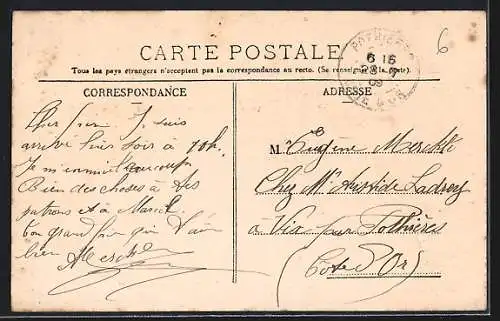 6
CARTE POSTALE
Tous les pays étrangers n'acceptent pas la correspondance au recto. (Se renseigner à la poste).
CORRESPONDANCE
ADRESSE
POTHIERES
6 15
Cher frère Je suis
arrivé hier soir à 10h.
Je m'ennui beaucoup
Bien des choses à tes
patrons et à Marcel.
ton grand frère qui t'aime
bien
M. Eugène
Chez Mr Aristide Ladrey
à Vix par Pothières
(Côte d'Or)